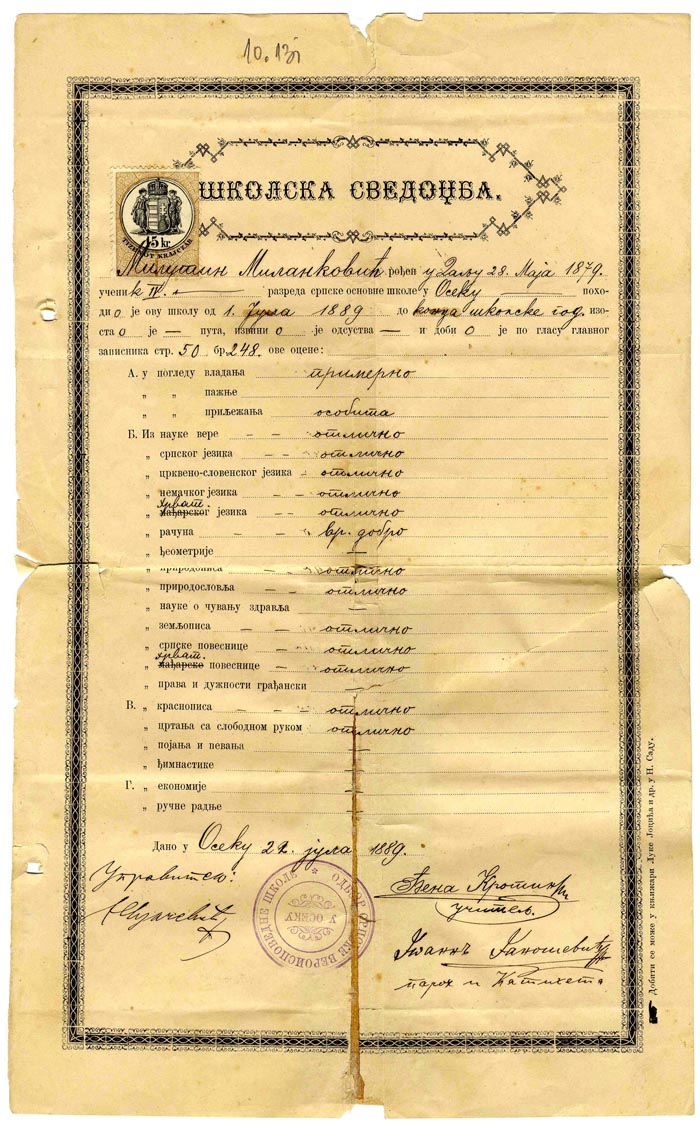 10.13
ШКОЛСКА СВЕДОЏБА.
15 kr.
TIZENÖT KRAJCZÁR
Милутин Миланковић рођен у Даљу 28. Маја 1879.
ученик IV. разреда српске основне школе у Осеку похо-
ди о је ову школу од 1. Јула 1889 до конца школске год. изо-
ста о је — пута, извини о је одсуства — и доби о је по гласу главног
записника стр. 50 бр. 248. ове оцене:
А. у погледу владања примерно
„ „ пажње
„ „ приљежања особита
Б. Из науке вере – – отлично
„ српског језика – – отлично
„ црквено-словенског језика – отлично
„ немачког језика – – отлично
хрват.
„ мађарског језика – – отлично
„ рачуна – – вр. добро
„ ђеометрије —
„ природописа – – отлично
„ природословља – отлично
„ науке о чувању здравља —
„ земљописа – – отлично
„ српске повеснице – отлично
хрват.
„ мађарске повеснице – отлично
„ права и дужности грађански —
В. „ краснописа – – – отлично
„ цртања са слободном руком отлично
„ појања и певања —
„ ђимнастике —
Г. „ економије —
„ ручне радње —
Дано у Осеку 22. јула 1889.
Управител:
У ОСЕКУ
ВЕРОИСПОВЕДНЕ ШКОЛЕ
Ђена Кротин
учитељ.
Јоаннъ Јаношевић
парох и Катихета
Добити се може у књижари Луке Јоцића и др. у Н. Саду.